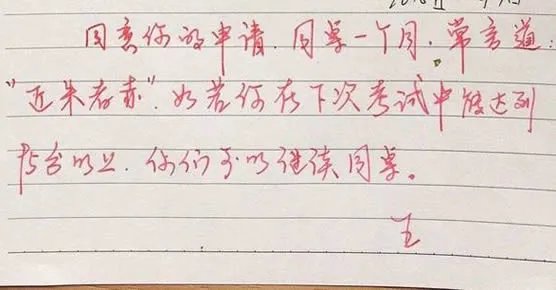 同意你的申请.同桌一个月.常言道:
"近朱者赤".如若你在下次考试中能达到
75名以上.你们可以继续同桌。
王